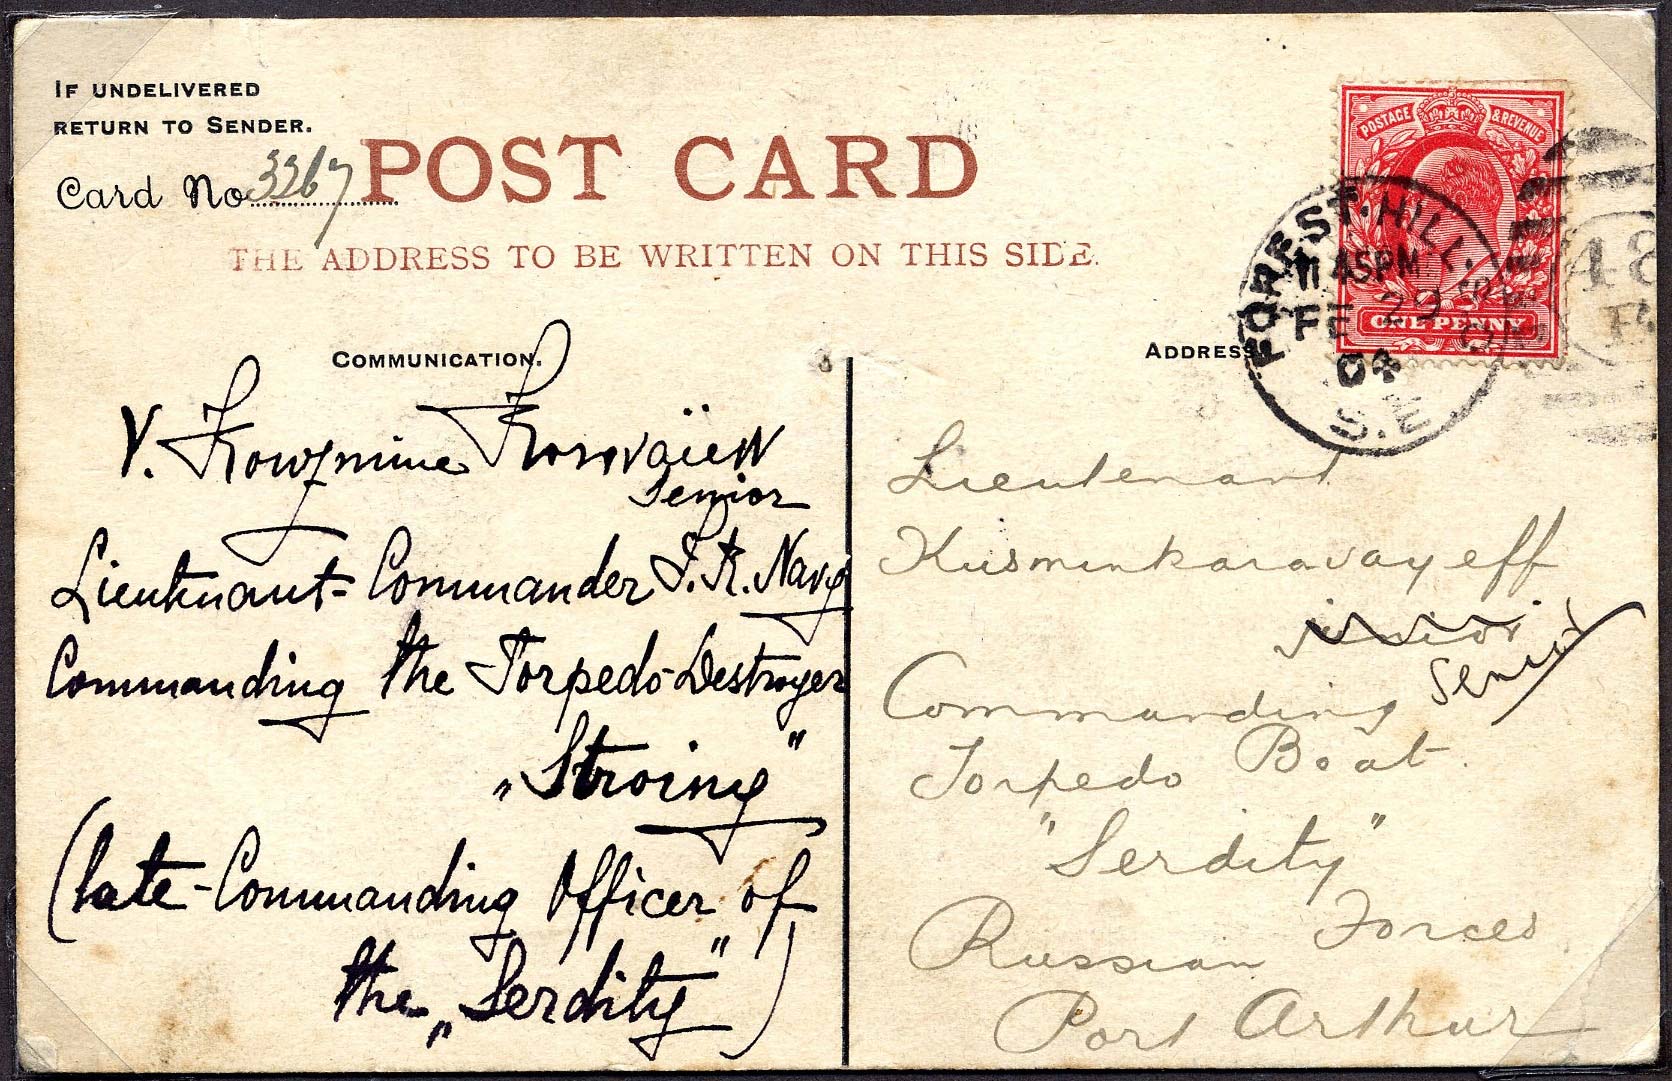 IF UNDELIVERED
RETURN TO SENDER.
Card No 3267
POST CARD
THE ADDRESS TO BE WRITTEN ON THIS SIDE.
POSTAGE & REVENUE
ONE PENNY
FOREST-HILL. S.O.
11 45PM
FE 29
04
S.E
48
COMMUNICATION.
V. Kowzmine Korovaïew
Senior
Lieutenant-Commander I.R. Navy
Commanding the Torpedo-Destroyer
„Stroiny"
(late-Commanding Officer of
the „Serdity")
ADDRESS
Lieutenant
Kusminkaravayeff
junior
senior
Commanding
Torpedo Boat
"Serdity"
Russian Forces
Port Arthur